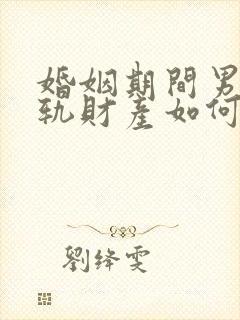 婚姻期間男
軌財產如何
劉絳雯